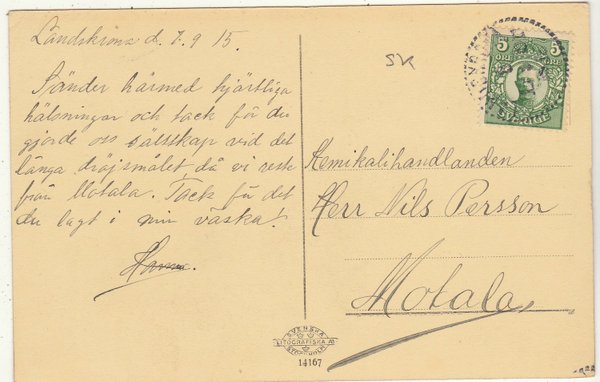 Landskrona d. 7.9 15.
Sänder härmed hjärtliga
hälsningar och tack för du
gjorde oss sällskap vid det
långa dröjsmålet då vi reste
från Motala. Tack för det
du lagt i min väska!
SK
5 5
ÖRE ÖRE
SVERIGE
Kemikalihandlanden
Herr Nils Persson
Motala.
SVENSKA
LITOGRAFISKA AB
STOCKHOLM
14167